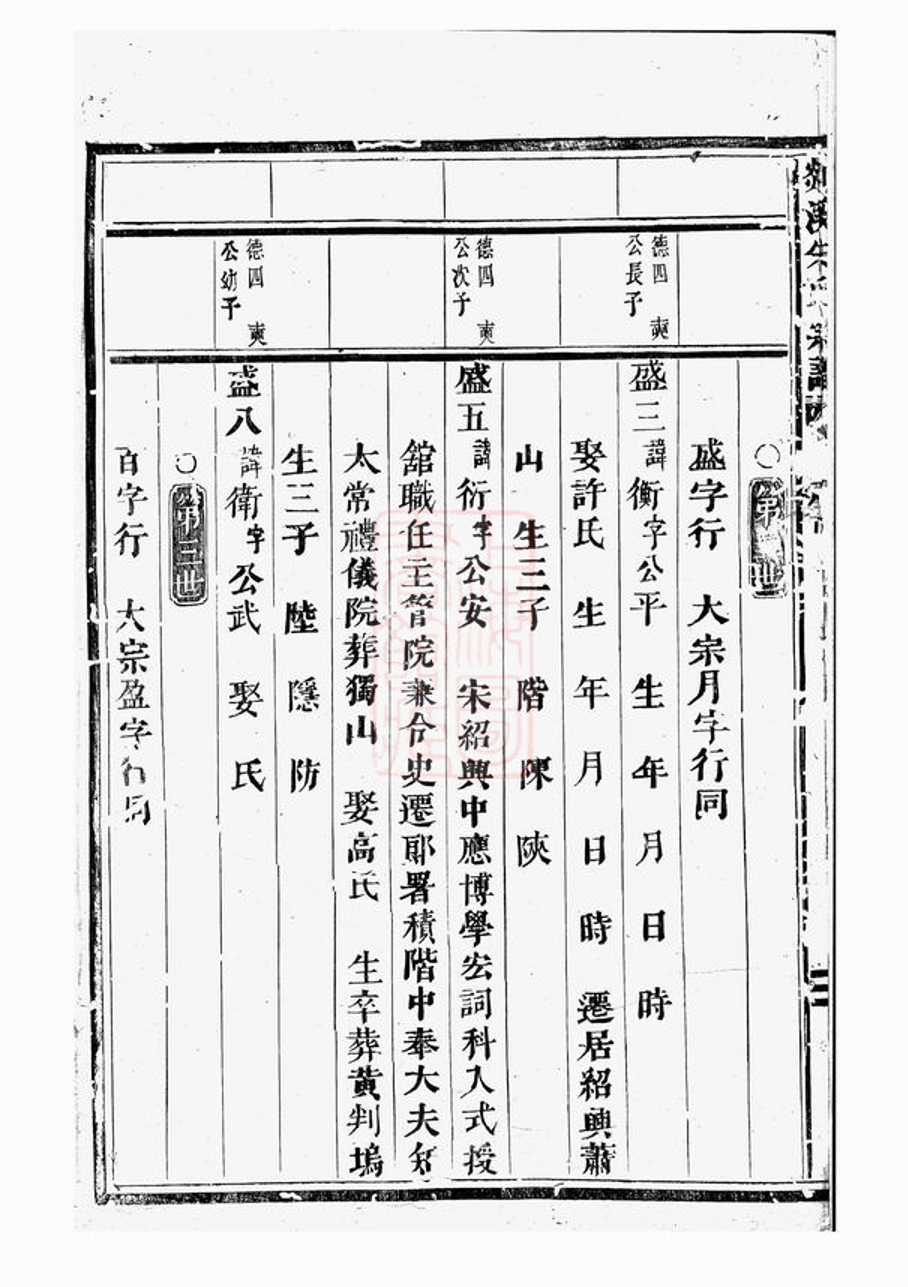 剡溪朱氏宗譜
○第二世
盛字行 大宗月字行同
德四 奭
公長子
盛三諱衡字公平 生 年 月 日 時
娶許氏 生 年 月 日 時 遷居紹興蕭
山 生三子 階 陳 陝
德四 奭
公次子
盛五諱衍字公安 宋紹興中應博學宏詞科入式授
舘職任主管院兼令史遷郎署積階中奉大夫知
太常禮儀院葬獨山 娶高氏 生卒葬黄判塢
生三子 陸 隱 防
德四 奭
公幼子
盛八諱衛字公武 娶 氏
○第三世
百字行 大宗盈字行同